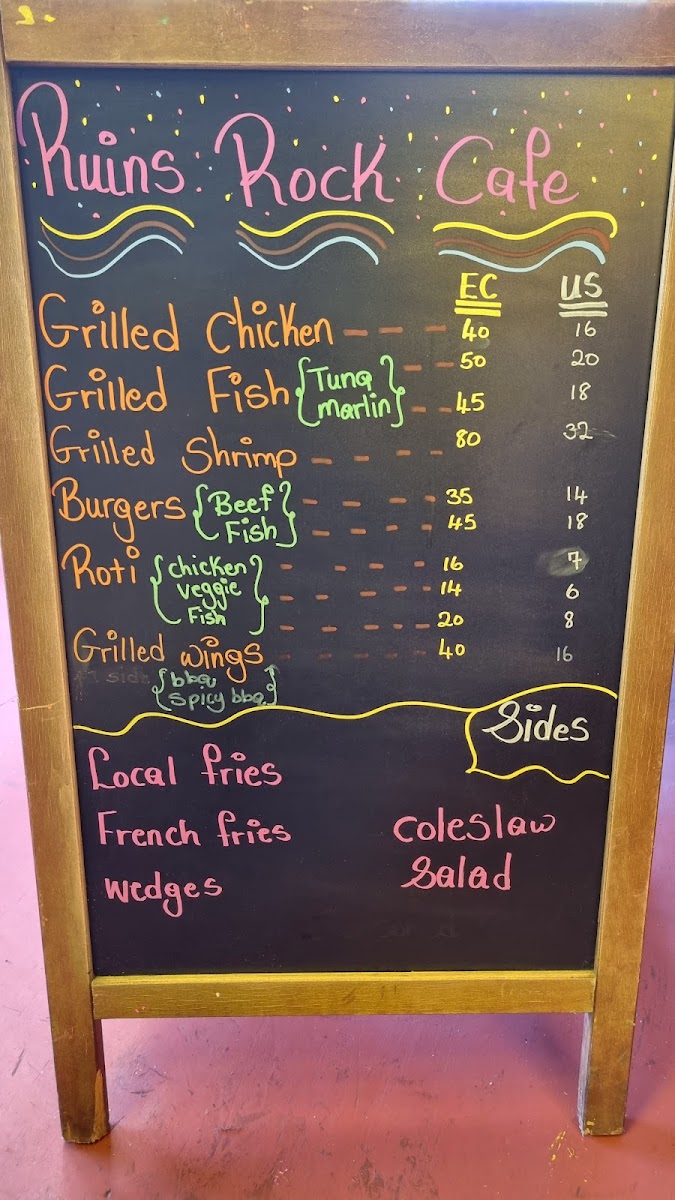 Ruins Rock Cafe
EC US
Grilled Chicken 40 16
Grilled Fish { Tuna } 50 20
{ marlin } 45 18
Grilled Shrimp 80 32
Burgers { Beef } 35 14
{ Fish } 45 18
Roti { chicken } 16 7
{ veggie } 14 6
{ Fish } 20 8
Grilled wings 40 16
{ bbq }
{ spicy bbq }
Sides
Local fries
French fries coleslaw
wedges Salad